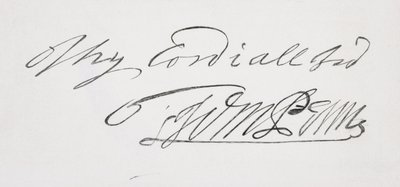 thy Cordiall frd
Wm Penn